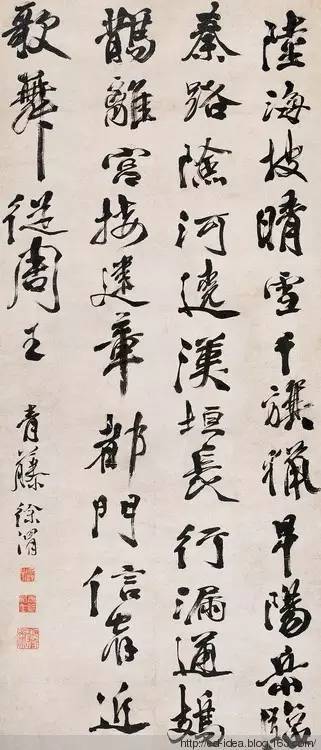 陸海披晴雪千旗獵早陽岳臨
秦路險河遶漢垣長行漏通鳷
鵲離宮接建章都門信宿近
歌舞從周王
青藤徐渭
http://cd-idea.blog.163.com/